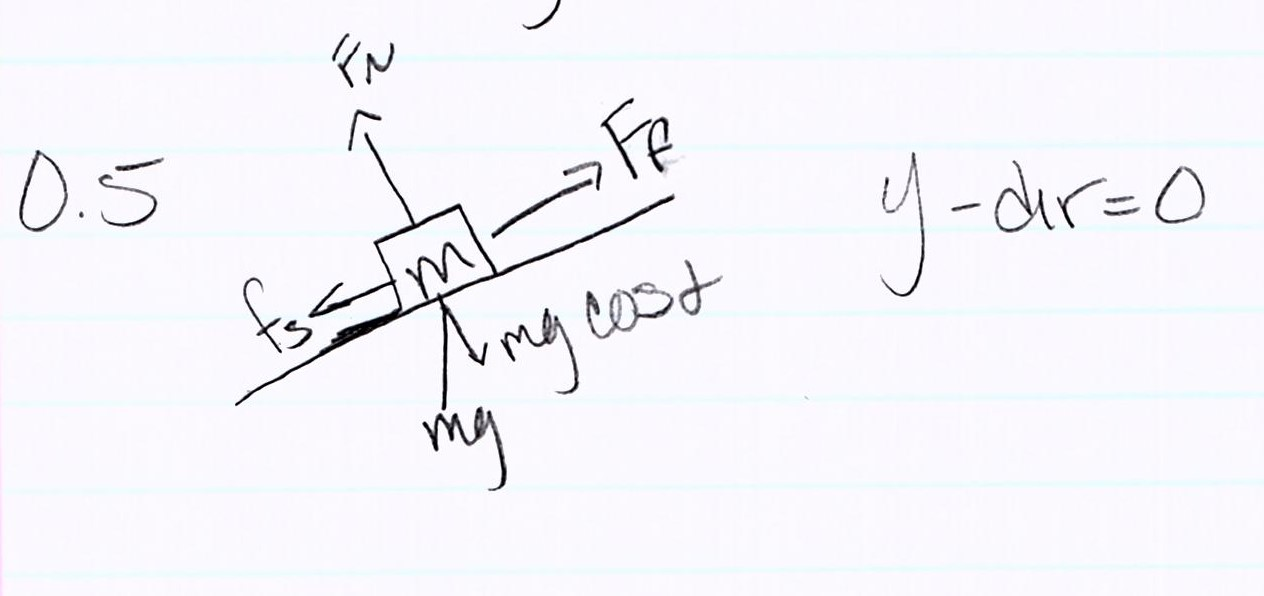 FN
0.5
m
fs
mg cost
mg
y-dir=0